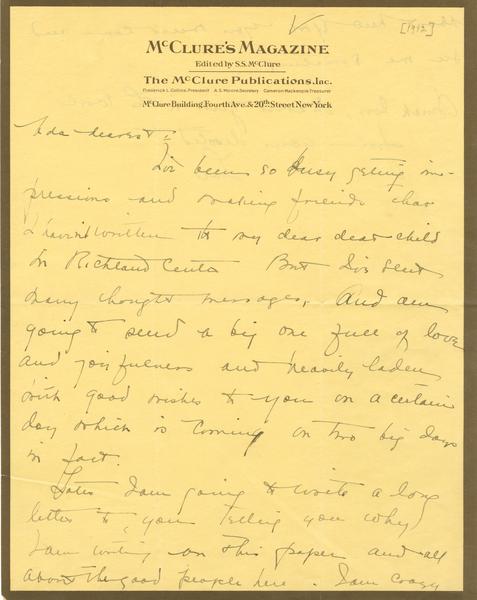 [1912]
McClure's Magazine
Edited by S.S. McClure
The McClure Publications, Inc.
Frederick L. Collins, President A. S. Moore, Secretary Cameron Mackenzie, Treasurer
McClure Building, Fourth Ave. & 20th Street New York
Ada dearest:
I've been so busy getting im-
pressions and making friends that
I havin't written to my dear dear child
in Richland Center But I've sent
many thought messages, And am
going to send a big one full of love
and joyfulness and heavily laden
with good wishes to you on a certain
day which is coming on two big days
in fact.
Later I am going to write a long
letter to you telling you why
I am writing on this paper and all
about the good people here. I am crazy